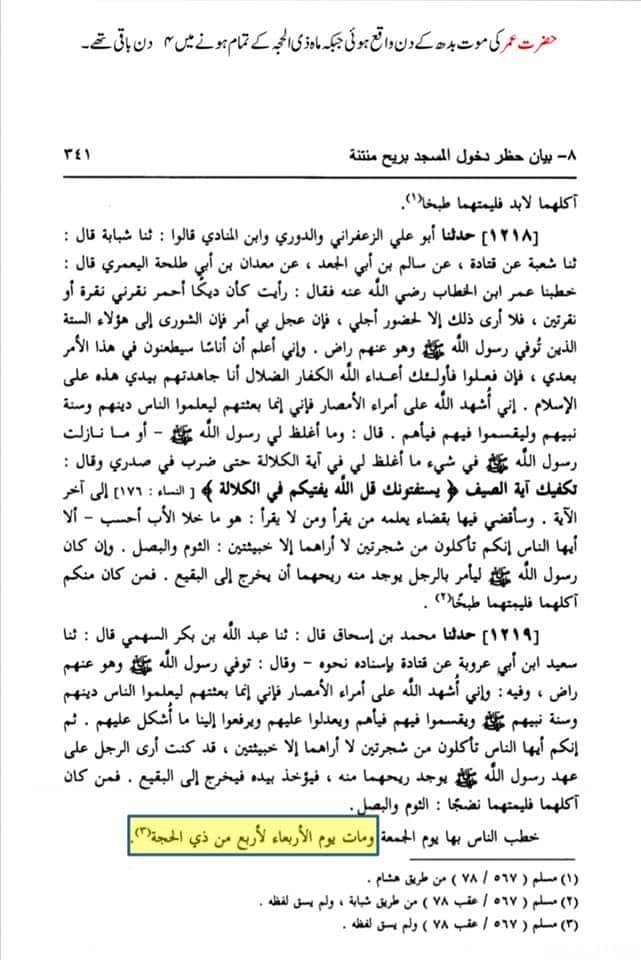 حضرت عمر کی موت بدھ کے دن واقع ہوئی جبکہ ماہ ذی الحجہ کے تمام ہونے میں ۴ دن باقی تھے۔
٨- بيان حظر دخول المسجد بريح منتنة ٣٤١
آكلهما لابد فليمتهما طبخا(١).
[١٢١٨] حدثنا أبو علي الزعفراني والدوري وابن المنادي قالوا : ثنا شبابة قال :
ثنا شعبة عن قتادة ، عن سالم بن أبي الجعد ، عن معدان بن أبي طلحة اليعمري قال :
خطبنا عمر ابن الخطاب رضي اللَّه عنه فقال : رأيت كأن ديكًا أحمر نقرني نقرة أو
نقرتين ، فلا أرى ذلك إلا لحضور أجلي ، فإن عجل بي أمر فإن الشورى إلى هؤلاء الستة
الذين تُوفي رسول اللَّه ﷺ وهو عنهم راض . وإني أعلم أن أناسًا سيطعنون في هذا الأمر
بعدي ، فإن فعلوا فأولئك أعداء اللَّه الكفار الضلال أنا جاهدتهم بيدي هذه على
الإسلام . إني أُشهد اللَّه على أمراء الأمصار فإني إنما بعثتهم ليعلموا الناس دينهم وسنة
نبيهم وليقسموا فيهم فيأهم . قال : وما أغلظ لي رسول اللَّه ﷺ – أو ما نازلت
رسول اللَّه ﷺ في شيء ما أغلظ لي في آية الكلالة حتى ضرب في صدري وقال :
تكفيك آية الصيف ﴿ يستفتونك قل اللَّه يفتيكم في الكلالة ﴾ [ النساء : ١٧٦] إلى آخر
الآية . وسأقضي فيها بقضاء يعلمه من يقرأ ومن لا يقرأ : هو ما خلا الأب أحسب – ألا
أيها الناس إنكم تأكلون من شجرتين لا أراهما إلا خبيثتين : الثوم والبصل . وإن كان
رسول اللَّه ﷺ ليأمر بالرجل يوجد منه ريحهما أن يخرج إلى البقيع . فمن كان منكم
آكلهما فليمتهما طبخًا(٢) .
[١٢١٩] حدثنا محمد بن إسحاق قال : ثنا عبد اللَّه بن بكر السهمي قال : ثنا
سعيد ابن أبي عروبة عن قتادة بإسناده نحوه – وقال : توفي رسول اللَّه ﷺ وهو عنهم
راض ، وفيه : وإني أُشهد اللَّه على أمراء الأمصار فإني إنما بعثتهم ليعلموا الناس دينهم
وسنة نبيهم ﷺ ويقسموا فيهم فيأهم ويعدلوا عليهم ويرفعوا إلينا ما أُشكل عليهم . ثم
إنكم أيها الناس تأكلون من شجرتين لا أراهما إلا خبيثتين ، قد كنت أرى الرجل على
عهد رسول اللَّه ﷺ يوجد ريحهما منه ، فيؤخذ بيده فيخرج إلى البقيع . فمن كان
آكلهما فليمتهما نضجًا : الثوم والبصل.
خطب الناس بها يوم الجمعة ومات يوم الأربعاء لأربع من ذي الحجة(٣).
(١) مسلم ( ٥٦٧ / ٧٨ ) من طريق هشام .
(٢) مسلم ( ٥٦٧ / عقب ٧٨ ) من طريق شبابة ، ولم يسق لفظه .
(٣) مسلم ( ٥٦٧ / عقب ٧٨ ) ولم يسق لفظه .